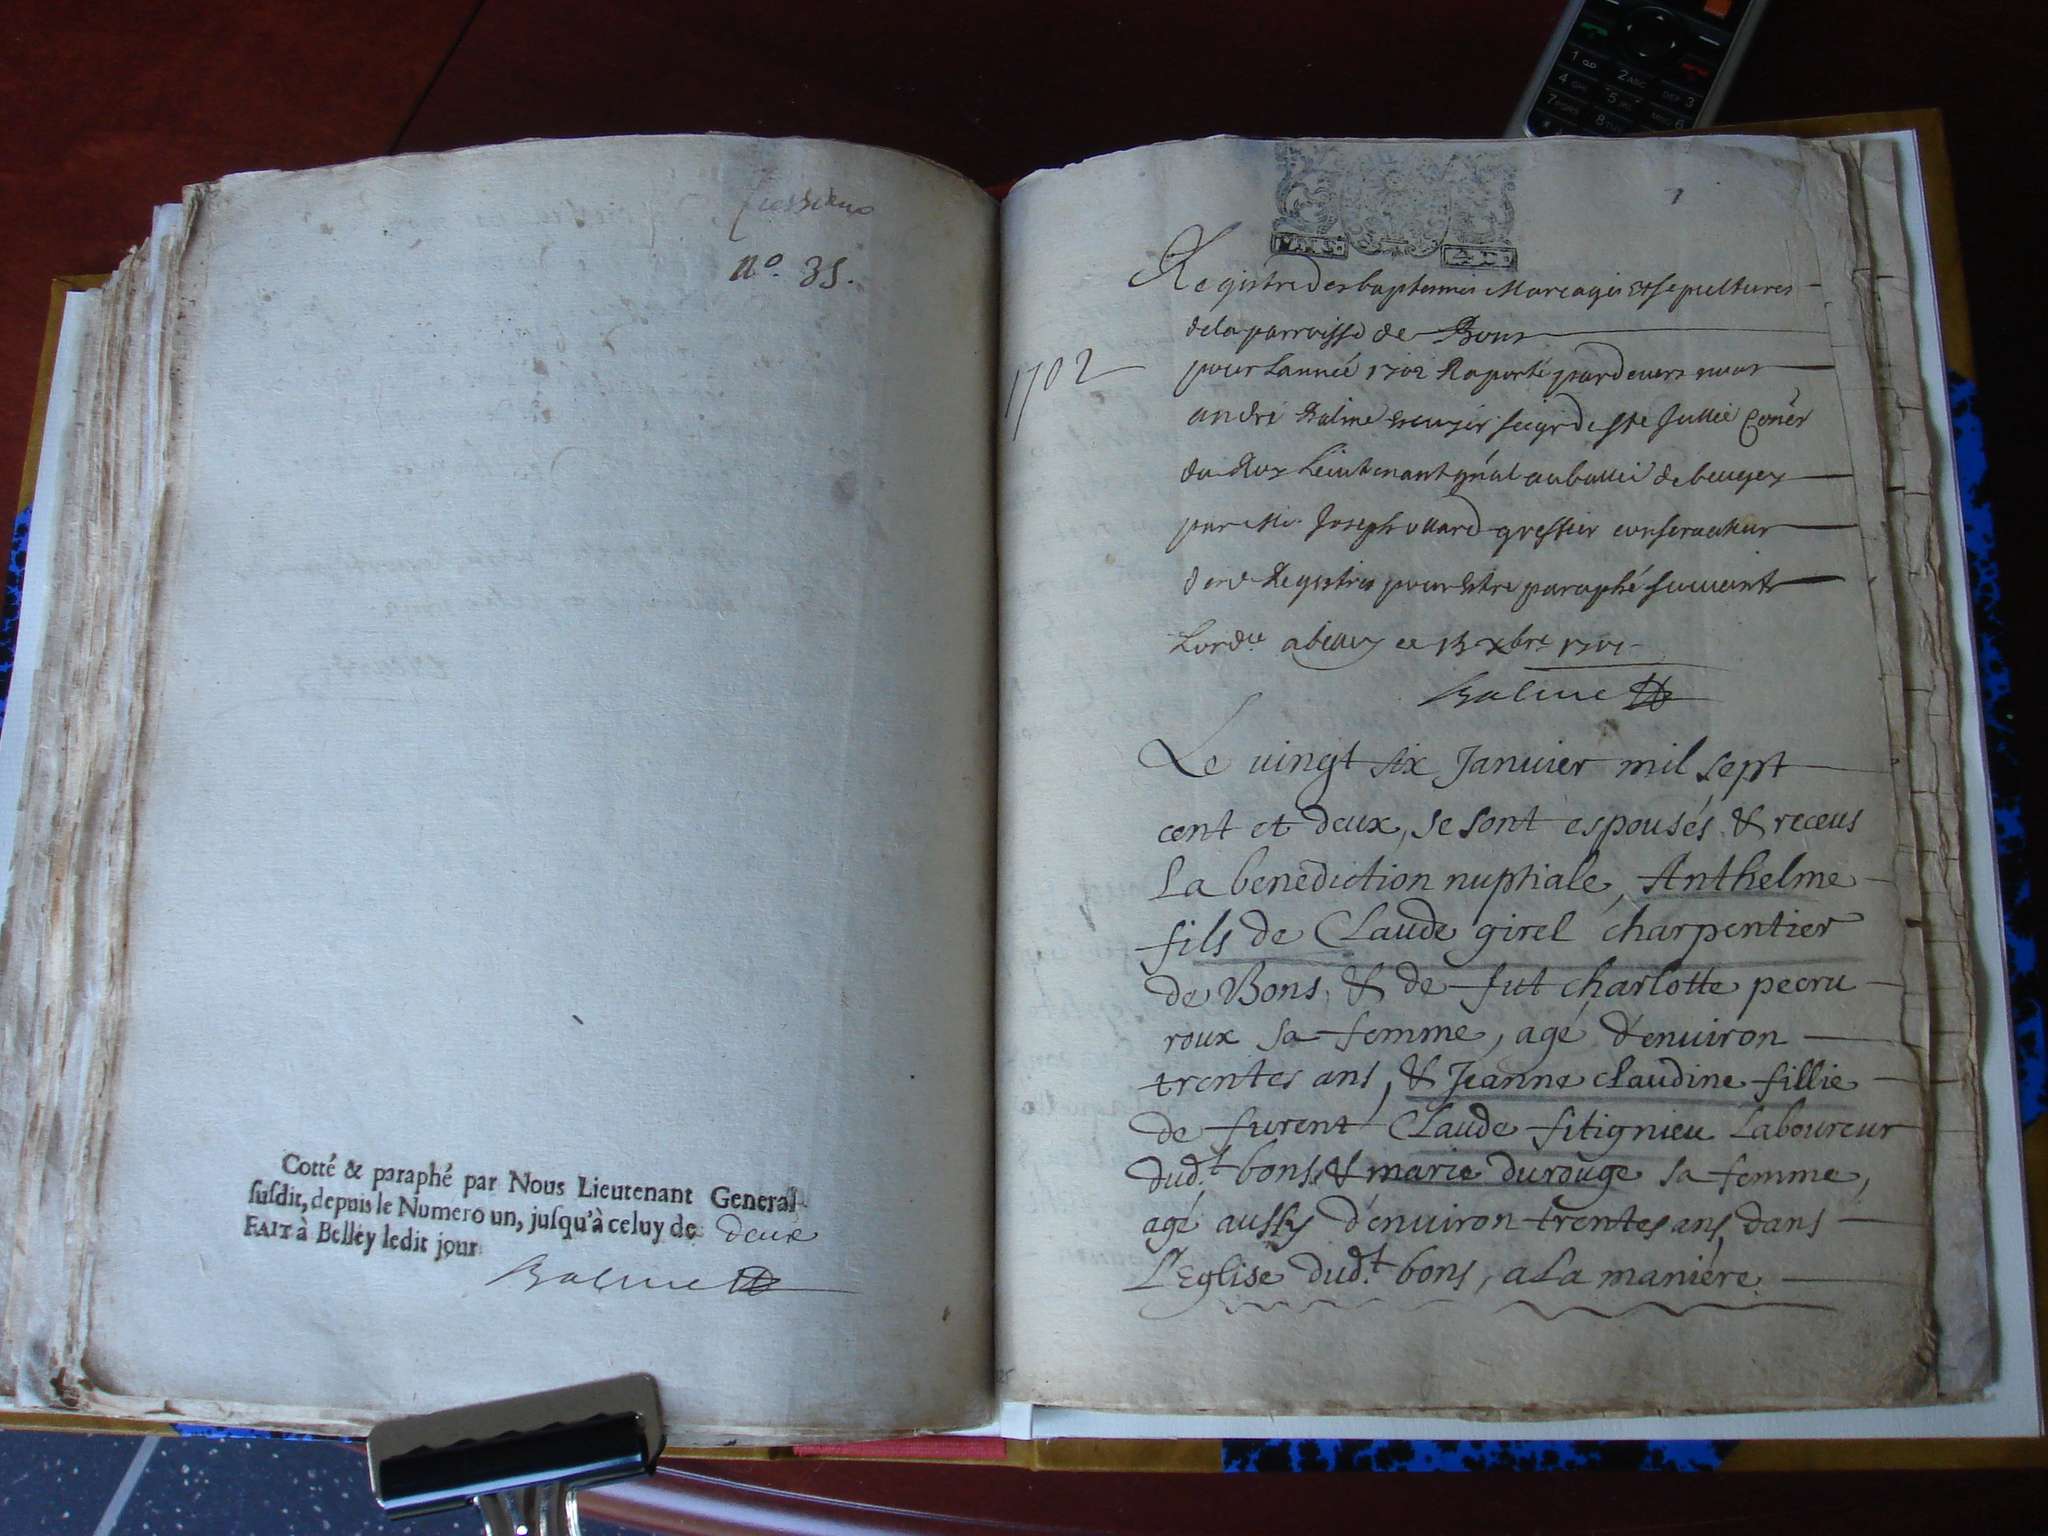 nº. 35.
Cotté & paraphé par Nous Lieutenant General
susdit, depuis le Numero un, jusqu'à celuy de deux
FAIT à Belley ledit jour
Balme
1
1702
Registre des baptesmes Mareages et sepultures
de la parroisse de Bons
pour Lanneé 1702 Raporté pardevers nous
andré Balme escuyer seigr de ste Jullie Coner
du Roy Lieutenant gnãl au balli de beugey
par Me. Joseph ollard greffier conservateur
des Registres pour Estre paraphé suivant
Lordce a beley ce 13 xbre 1701
Balme
Le vingt six Januier mil sept
cent et deux, se sont espousés & receus
La benediction nuptiale, Anthelme
fils de Claude girel charpentier
de Bons, & de fut charlotte pecru
roux sa femme, agé d'enuiron
trentes ans, & Jeanne claudine fillie
de furent Claude fitignieu Laboureur
dud.t bons, & marie durouge sa femme,
agé aussy d'enuiron trentes ans, dans
L'Eglise dud.t bons, a La maniére
1 2ABC DEF 3
4 GHI 5 JKL MNO 6
7PQRS 8